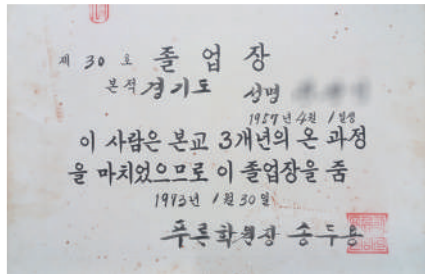 제 30 호 졸업장
본적 경기도 성명
1957년 4월 1일생
이 사람은 본교 3개년의 온 과정
을 마치었으므로 이 졸업장을 줌
1973년 1월 30일
푸른학원장 송두용